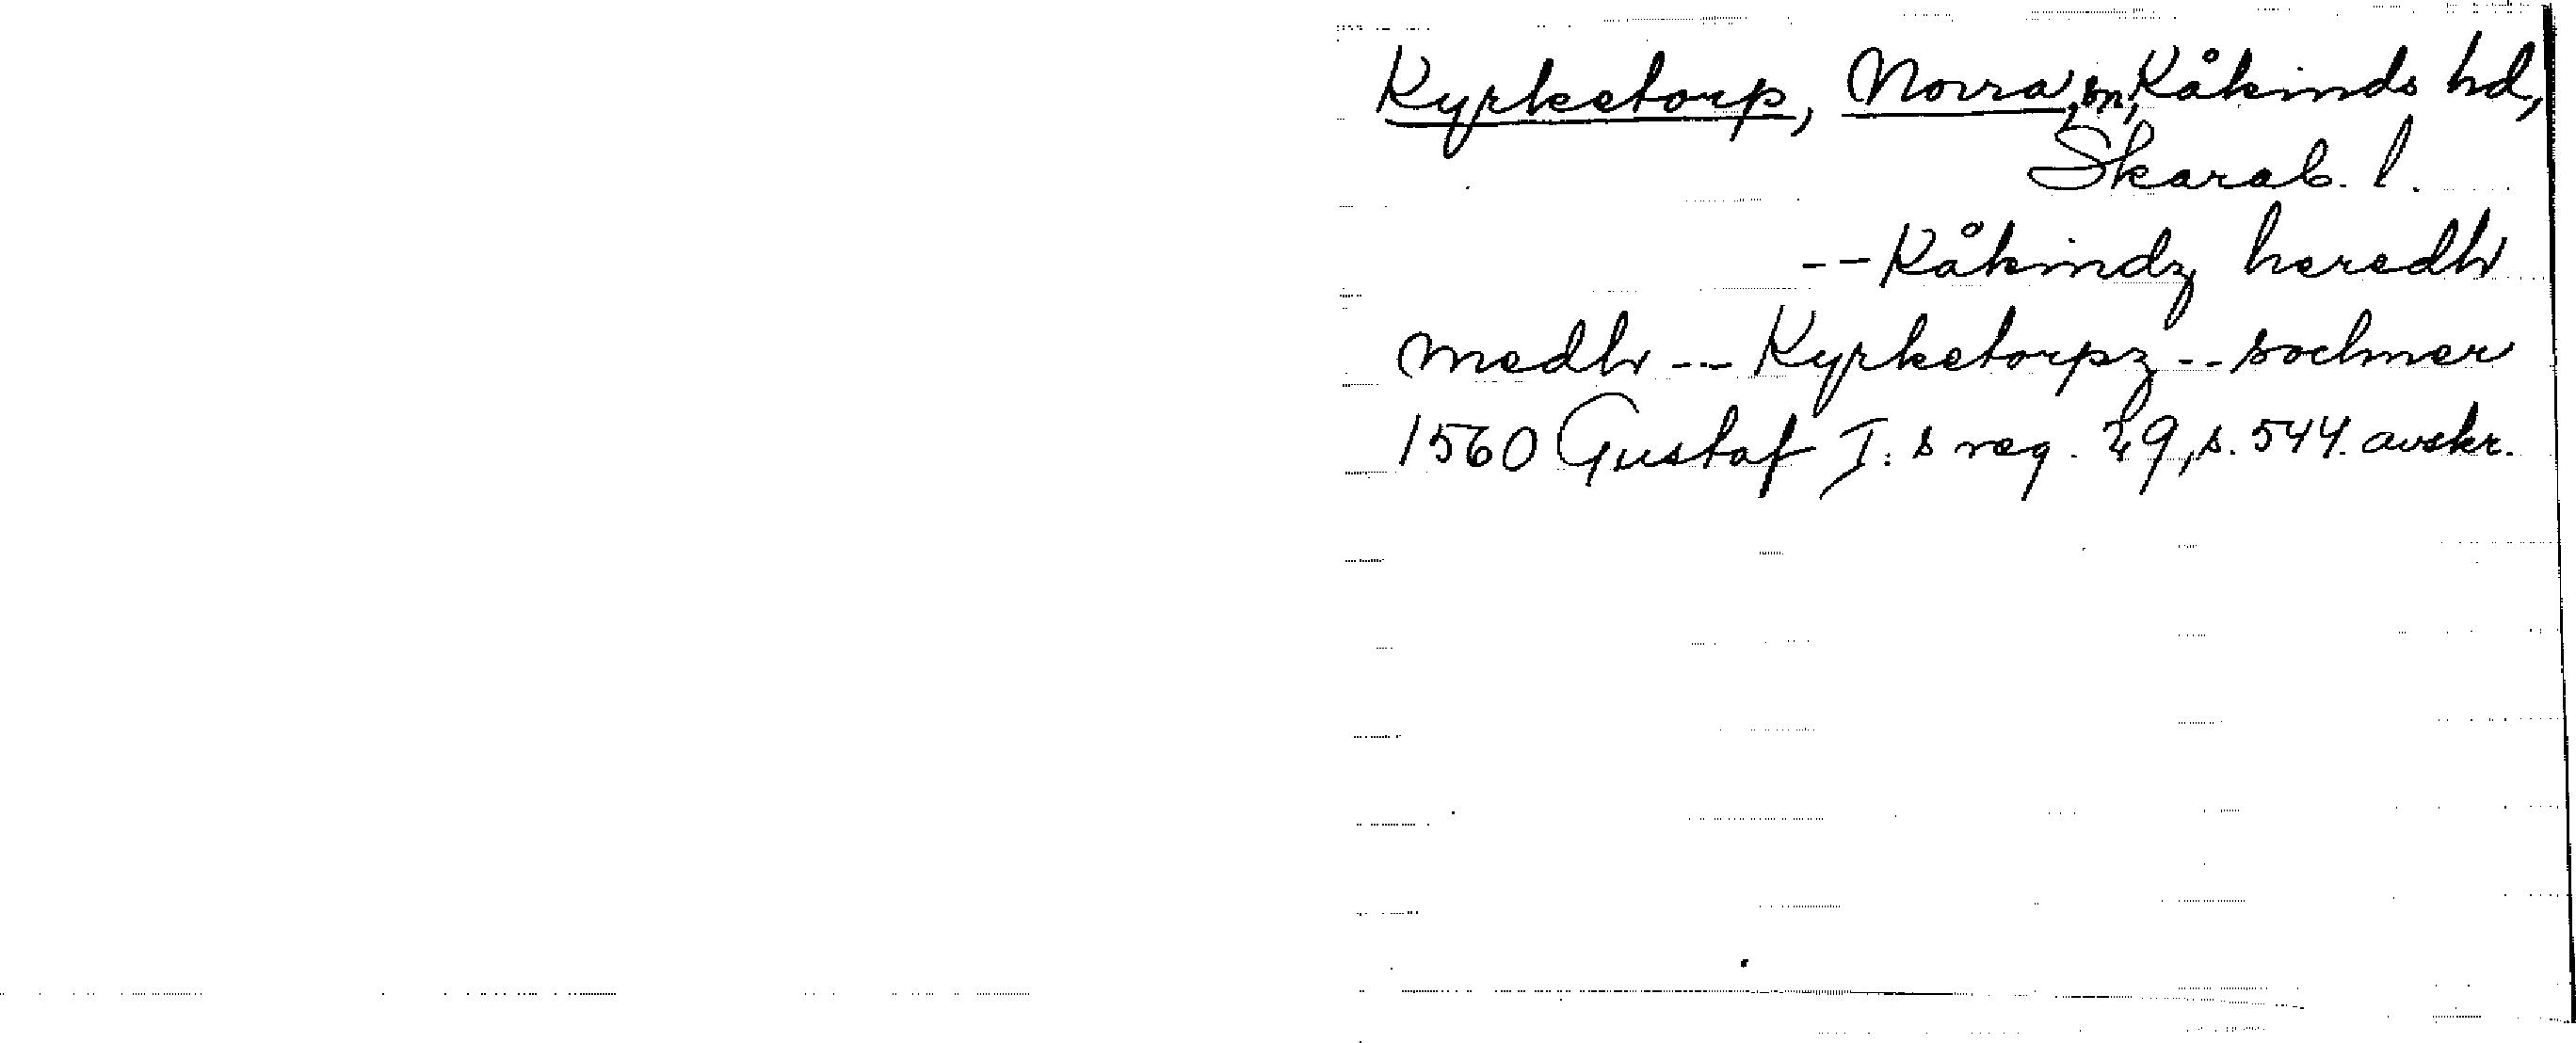 Kyrketorp, Norra, sn, Kåkinds hd,
Skarab. l.
-- Kåkindz heredh
medh --- Kyrketorpz -- sochner
1560 Gustaf I:s reg. 29, s. 544. avskr.